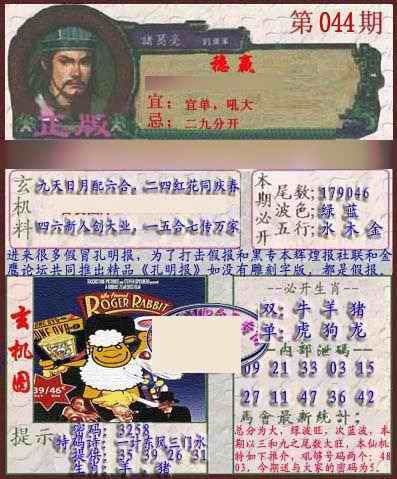 第044期
諸葛亮
穩贏
宜: 宜单,吼大
忌: 二九分开
正版
玄机料
九天日月配六合,二四红花同庆春
四六新人创大业,一五合七传万家
本期必开
尾数:179046
波色:绿 蓝
五行:水 木 金
进来很多假冒孔明报,为了打击假报和黑专本辉煌报社联和金
鹰论坛共同推出精品《孔明报》如没有雕刻字版,都是假报。
玄机图
ROGER RABBIT
39/46
--必开生肖--
双:牛羊猪
单:虎狗龙
--内部泄码--
09 21 33 03 15
27 11 47 36 42
馬會最新統計:
总分为大,绿波旺,次蓝波,本
期以三和九之尾数大旺,本仙机
特如下推介,吼够号码两个:48
03,今期送与大家的密码为5.
提示
密码:3258
特码诗:一计东风三门永
提特:35 39 26 31
生肖:羊.猪